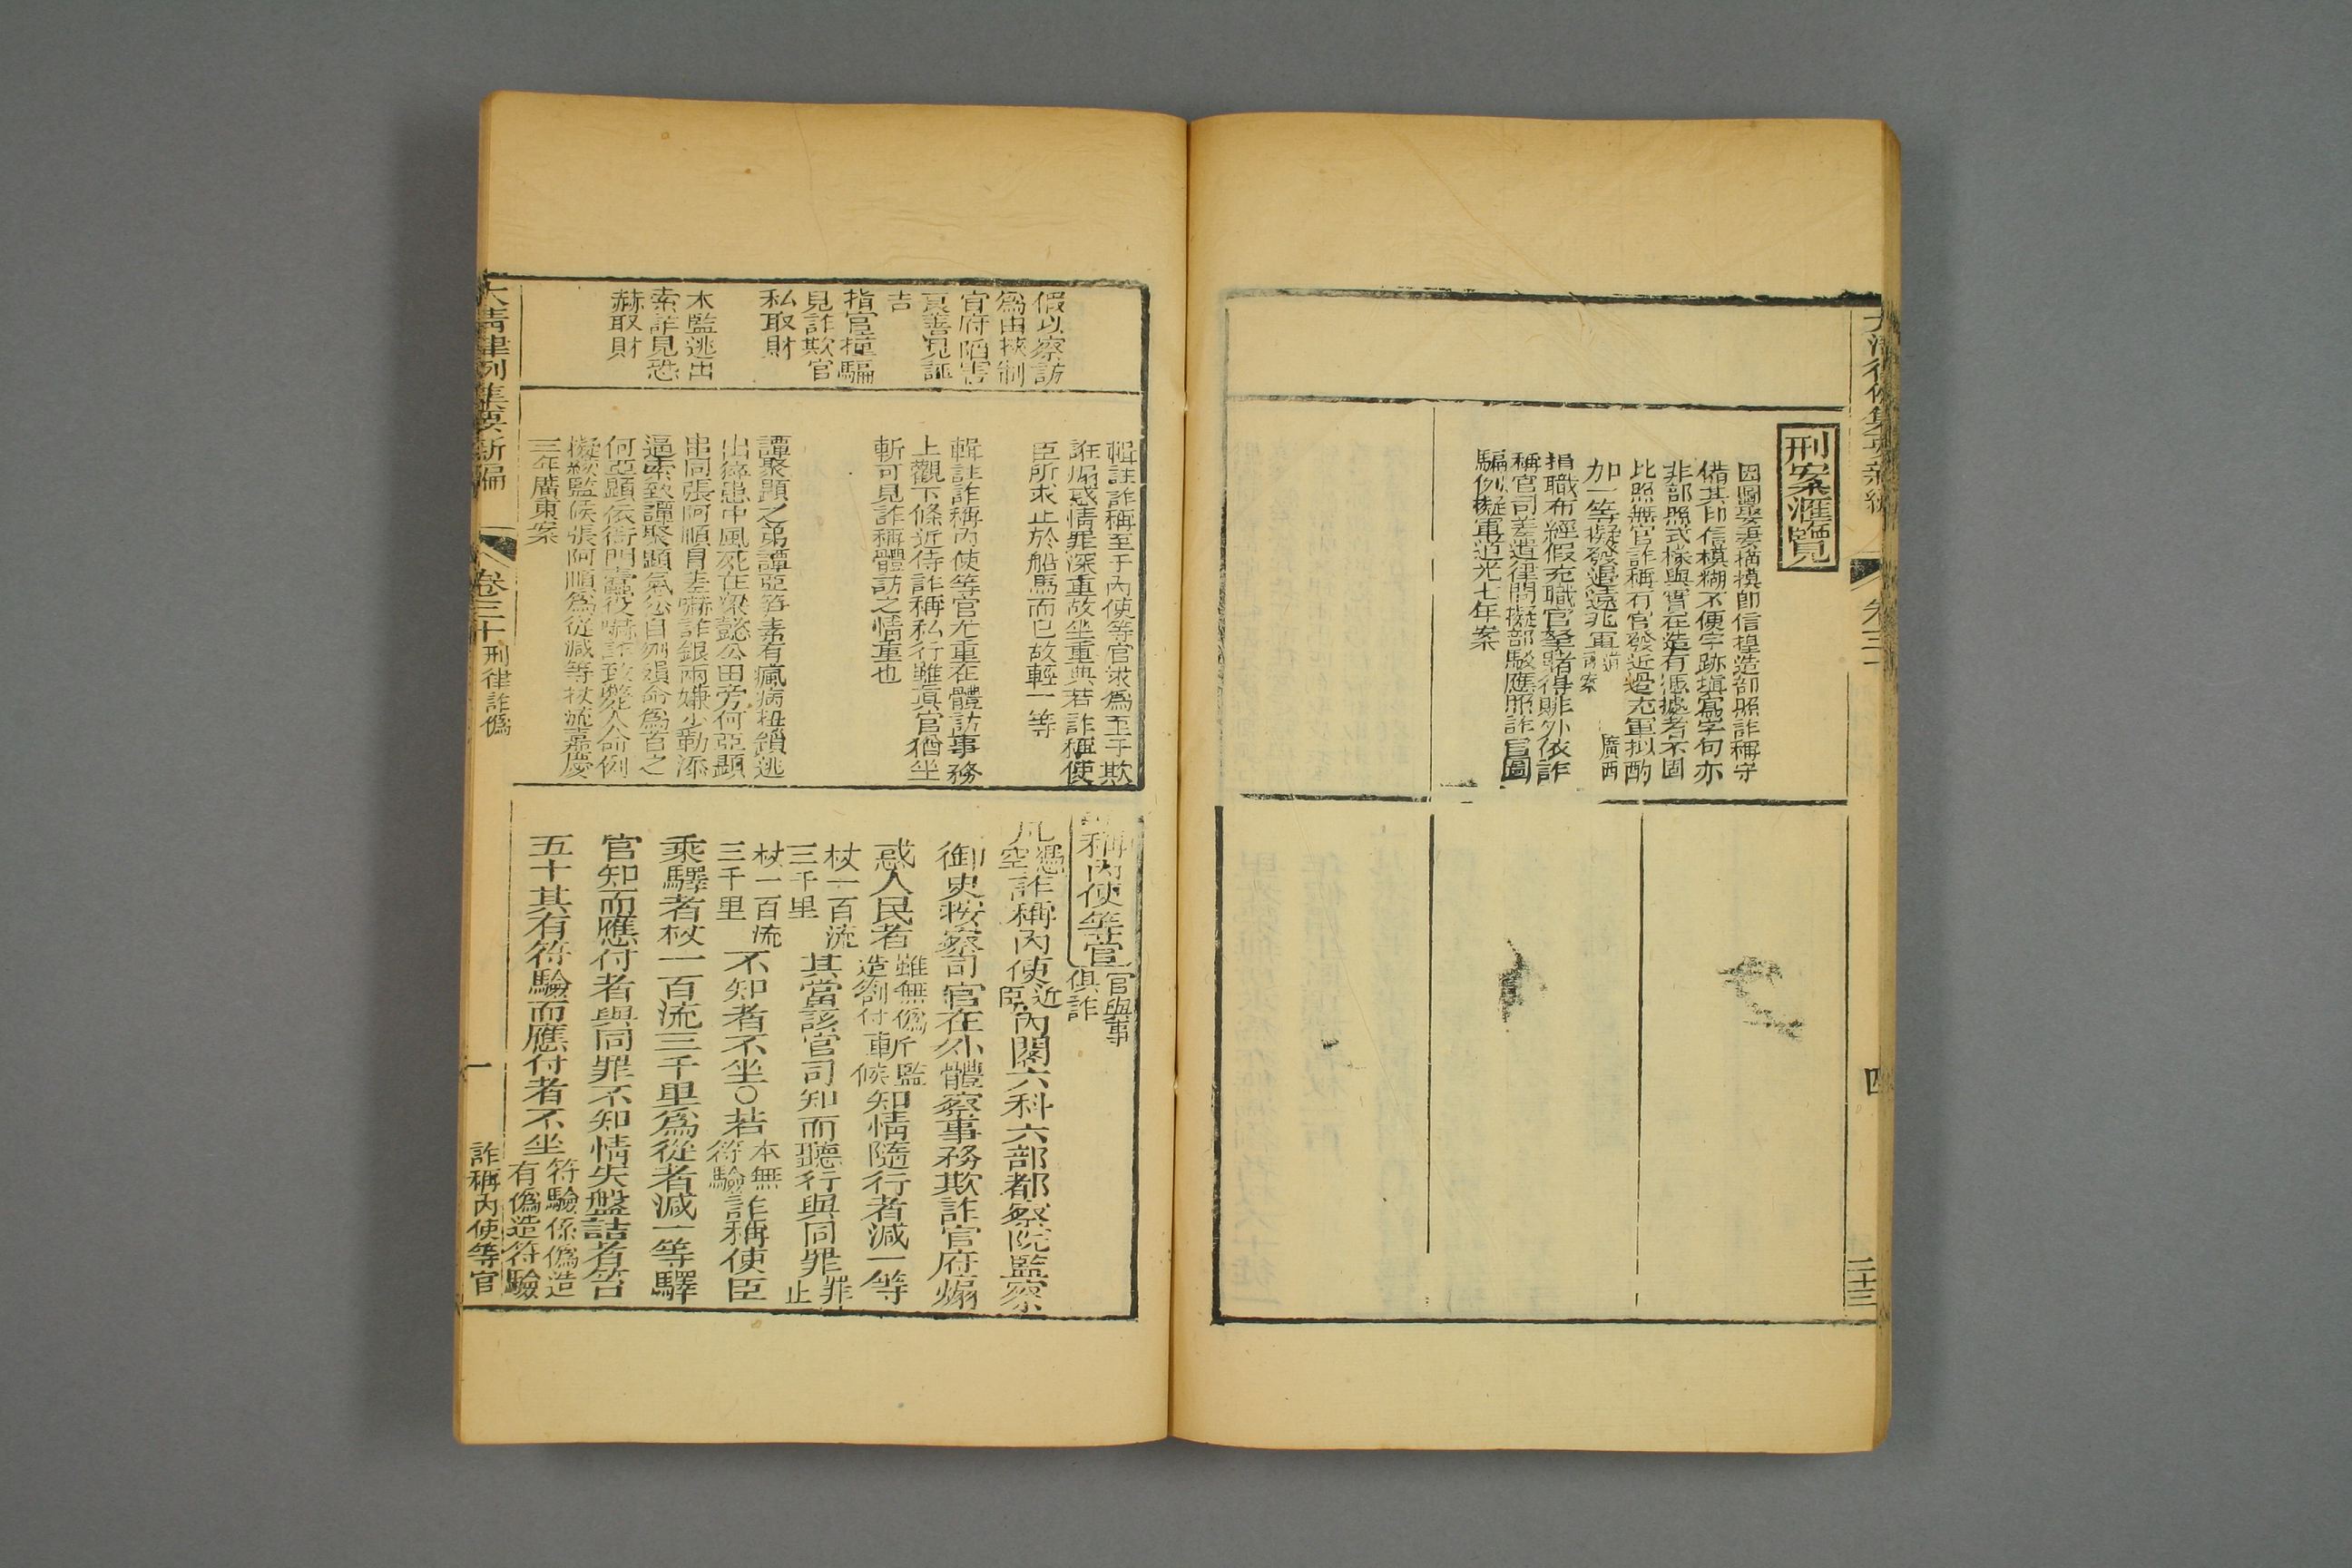 刑案滙覽
因圖娶妻描摸卽信揑造部照詐稱守
備其印信模糊不便字跡塡寫字句亦
非部照式樣與實在造有憑據者不同
比照無官詐稱有官發近邊充軍拟酌
加一等擬發邊遠充軍道 廣西案
捐職布經假充職官拏賭得賍外依詐
稱官司差遣律問擬部駁應照詐官圖
騙例擬軍道光七年案
四
二十三
假以察訪
爲由挾制
官府陷害
良善見誣
吿
指官撞騙
見詐欺官
私取財
木監逃出
索詐見恐
嚇取財
輯註詐稱至于內使等官求爲至于欺
誑煽惑情罪深重故坐重典若詐稱使
臣所求止於船馬而已故輕一等
輯註詐稱內使等官尤重在體訪事務
上觀下條近侍詐稱私行雖眞官猶坐
斬可見詐稱體訪之情重也
譚聚顯之弟譚亞笞素有瘋病扭鎖逃
出痰患中風死在梁懿公田旁何亞顯
串同張阿順冒差嚇詐銀兩嫌少勒添
逼索致譚聚顯氣忿自刎殞命爲首之
何亞顯依衙門蠹役嚇詐致斃人命例
擬絞監候張阿順爲從減等杖流嘉慶
三年廣東案
詐稱內使等官官與事俱詐
凡憑空詐稱內使近臣內閣六科六部都察院監察
御史按察司官在外體察事務欺詐官府煽
惑人民者雖無僞造劄付斬監候知情隨行者減一等
杖一百流三千里其當該官司知而聽行與同罪罪止
杖一百流三千里不知者不坐○若本無符驗詐稱使臣
乘驛者杖一百流三千里爲從者減一等驛
官知而應付者與同罪不知情失盤詰者笞
五十其有符驗而應付者不坐符驗係僞造有僞造符驗
大淸律例集要新編
卷三十刑律詐僞
一
詐稱內使等官